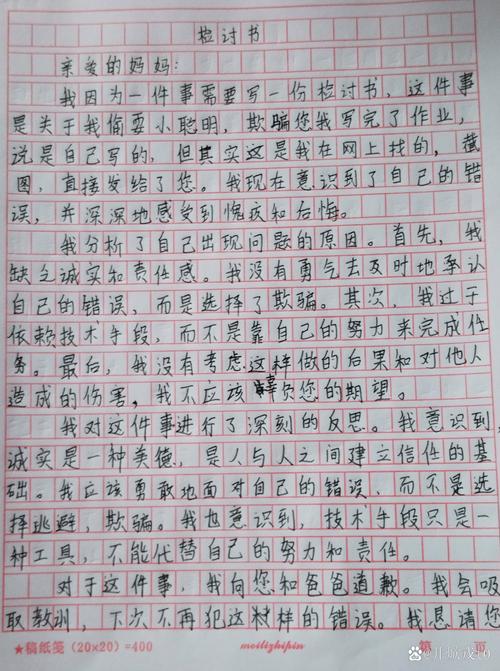 检讨书
亲爱的妈妈：
我因为一件事需要写一份检讨书，这件事
是关于我偷耍小聪明，欺骗您我写完了作业，
说是自己写的，但其实这是我在网上找的，截
图，直接发给了您。我现在意识到了自己的错
误，并深深地感受到愧疚和后悔。
我分析了自己出现问题的原因。首先，我
缺乏诚实和责任感。我没有勇气去及时地承认
自己的错误，而是选择了欺骗。其次，我过于
依赖技术手段，而不是靠自己的努力来完成任
务。最后，我没有考虑这样做的后果和对他人
造成的伤害，我不应该辜负您的期望。
我对这件事进行了深刻的反思。我意识到，
诚实是一种美德，是人与人之间建立信任的基
础。我应该勇敢地面对自己的错误，而不是选
择逃避，欺骗。我也意识到，技术手段只是一
种工具，不能代替自己的努力和责任。
对于这件事，我向您和爸爸道歉。我会吸
取教训，下次不再犯这样的错误。我恳请您
★稿纸笺（20×20）=400 meilizhipin 第 页